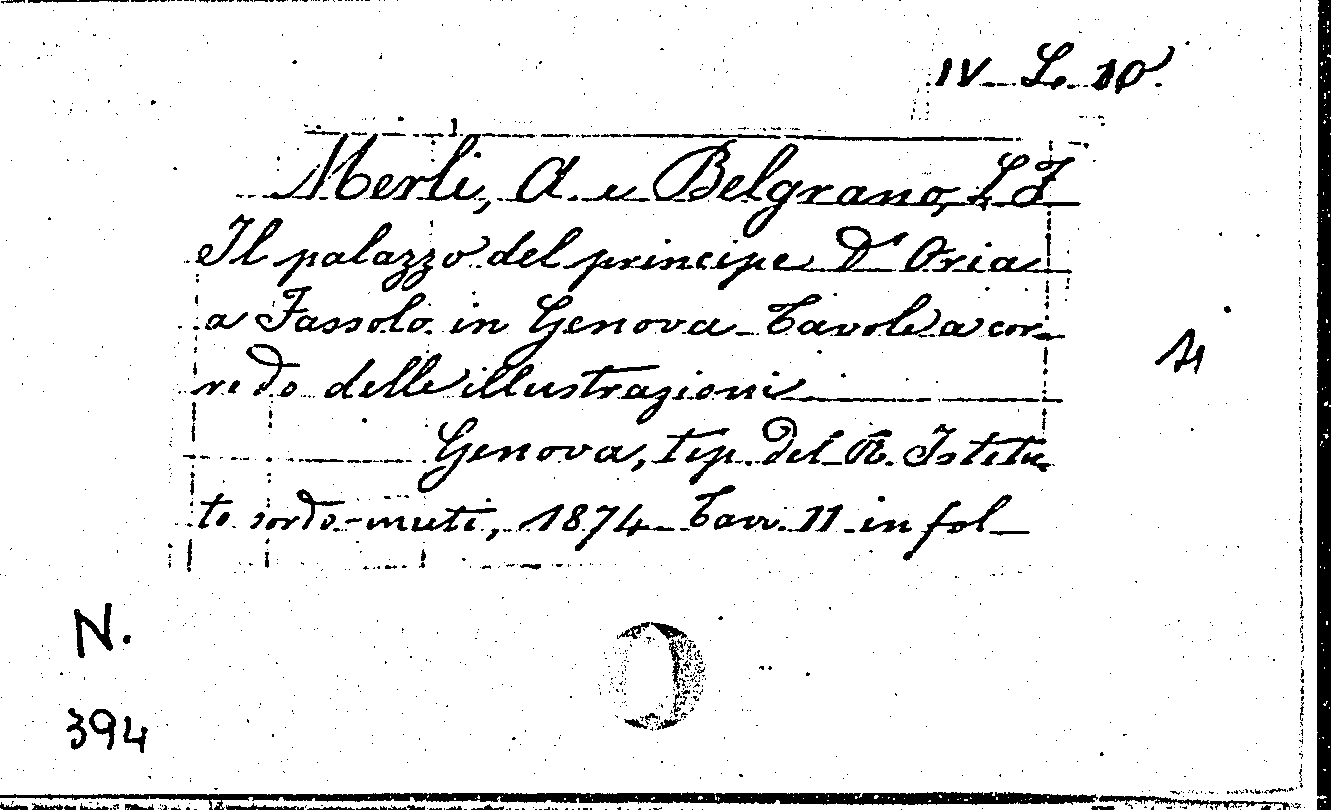 IV L. 10.
Merli, A. e Belgrano, L F
Il palazzo del principe D'Oria
a Fassolo in Genova Tavole a cor-
redo delle illustrazioni
Genova, tip. del R. Istitu-
to sordo-muti, 1874 Tav. 11 in fol
N.
394